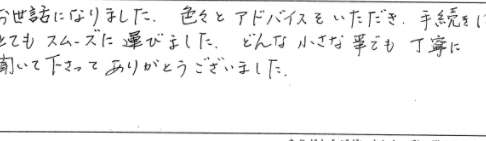 お世話になりました。色々とアドバイスをいただき、手続きは
とてもスムーズに運びました。どんな小さな事でも丁寧に
聞いて下さってありがとうございました。